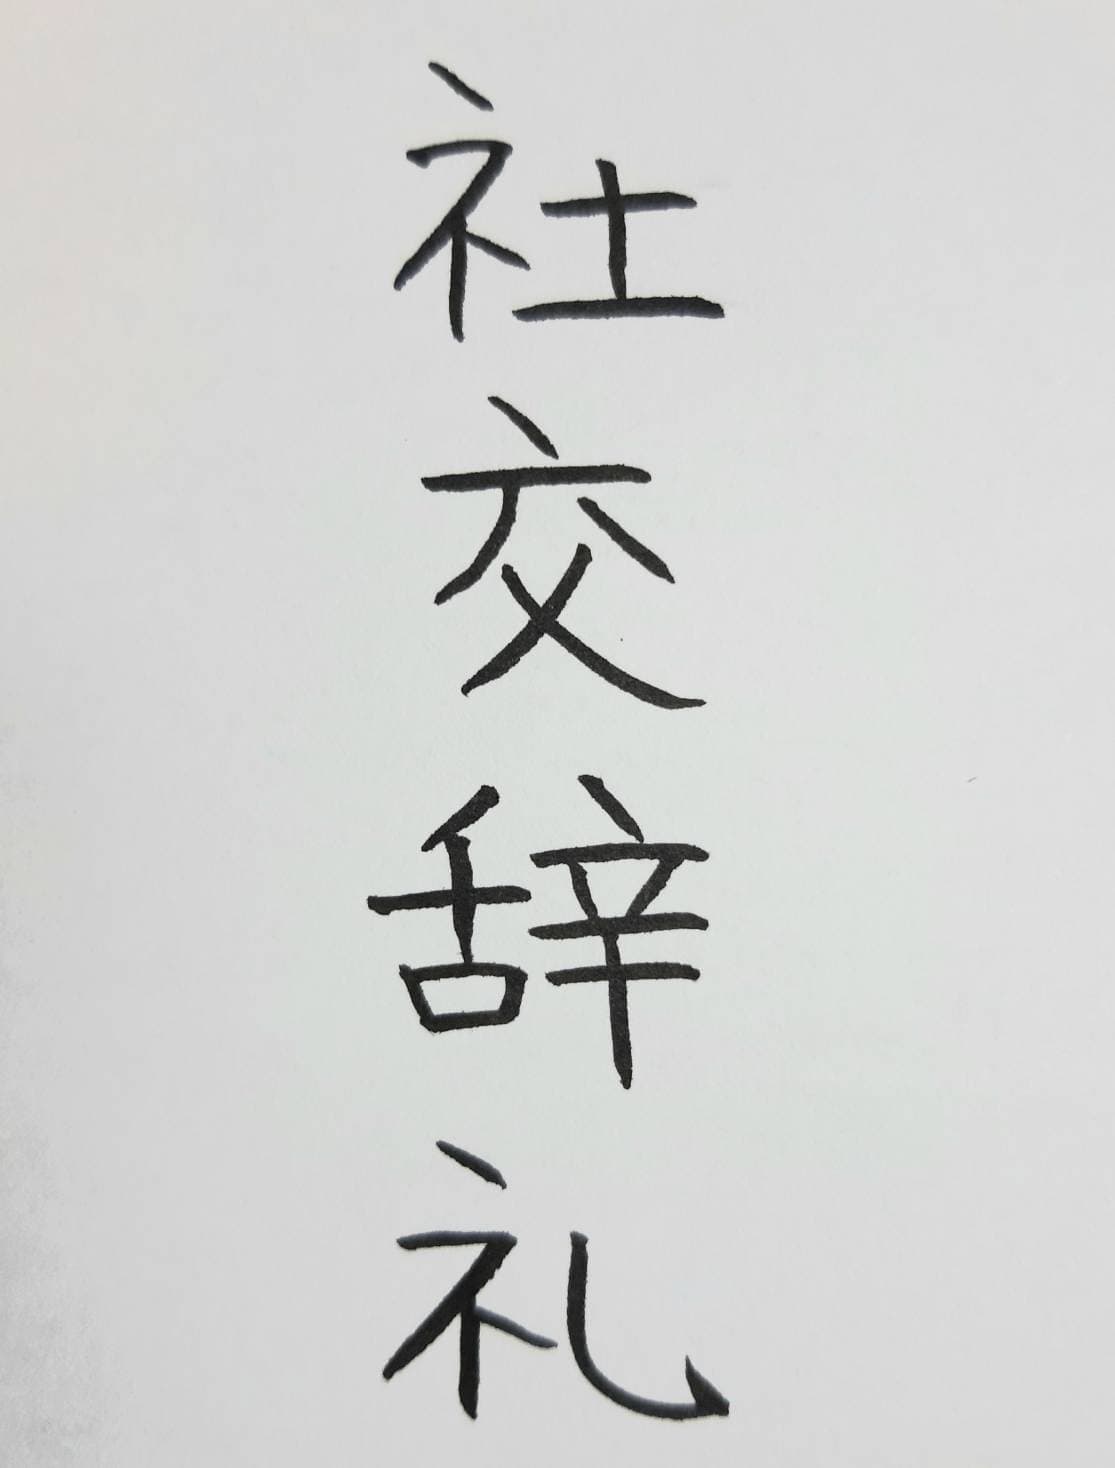 社交辞礼